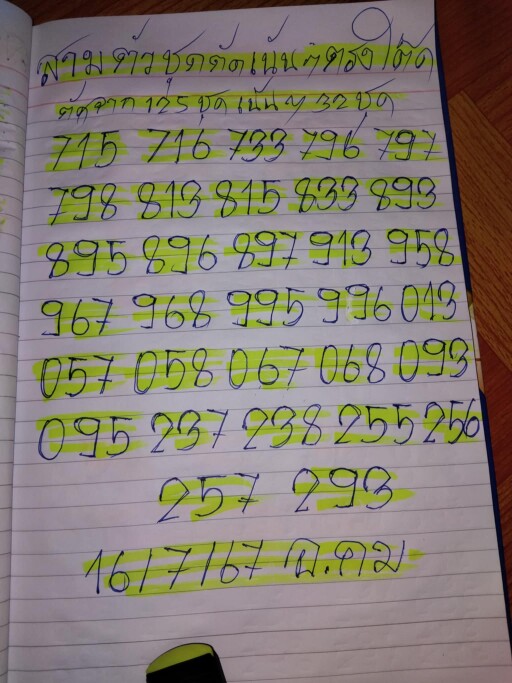 สามตัวชุดตัดเน้นๆตรงโต๊ด
ตัดจาก 125 ชุด เน้นๆ 32 ชุด
715 716 733 796 797
798 813 815 833 893
895 896 897 913 958
967 968 995 996 013
057 058 067 068 093
095 237 238 255 256
257 293
16/7/67 อ.คม